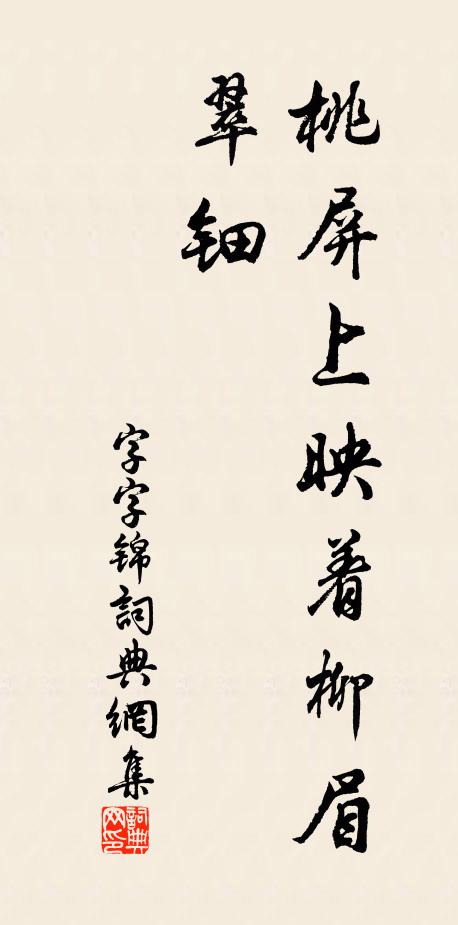 桃屏上映着柳眉
翠钿
字字锦詞典網集
詞典
网印